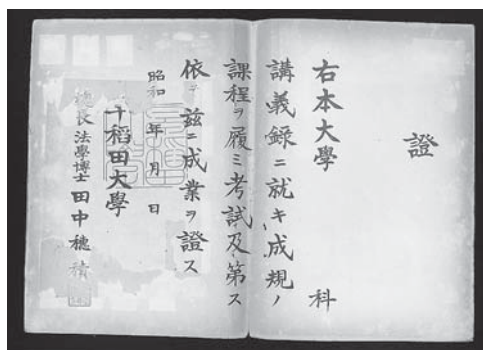 證
右本大學 科
講義錄ニ就キ成規ノ
課程ヲ履ミ考試及第ス
依テ茲ニ成業ヲ證ス
昭和 年 月 日
早稻田大學
總長法學博士 田中穗積